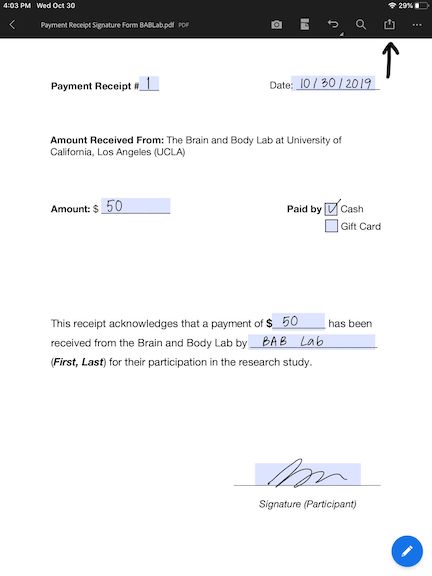 4:03 PM Wed Oct 30 29%
Payment Receipt Signature Form BABLab.pdf PDF
Payment Receipt # 1 Date: 10/30/2019
Amount Received From: The Brain and Body Lab at University of
California, Los Angeles (UCLA)
Amount: $ 50 Paid by Cash
Gift Card
This receipt acknowledges that a payment of $ 50 has been
received from the Brain and Body Lab by BAB Lab
(First, Last) for their participation in the research study.
Signature (Participant)